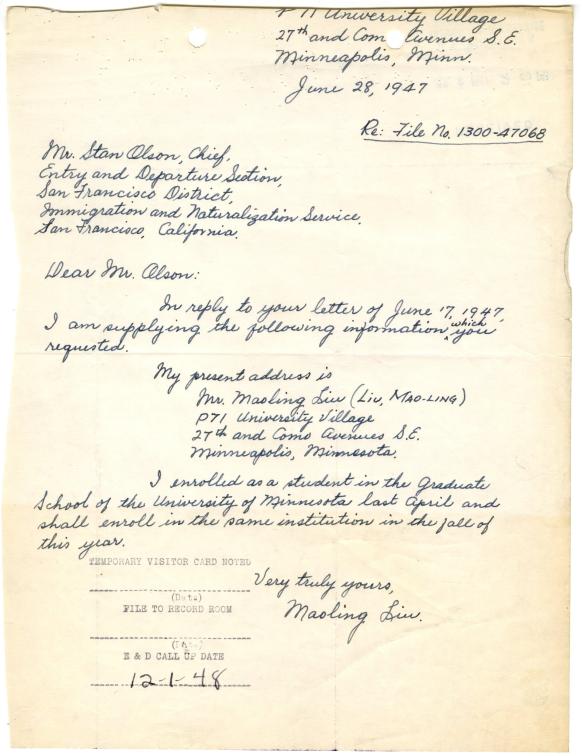 P71 University Village
27th and Como Avenues S.E.
Minneapolis, Minn.
June 28, 1947
Re: File No. 1300-47068
Mr. Stan Olson, Chief,
Entry and Departure Section,
San Francisco District,
Immigration and Naturalization Service,
San Francisco, California.
Dear Mr. Olson:
In reply to your letter of June 17, 1947,
I am supplying the following information which you
requested.
My present address is
Mr. Maoling Liu (LIU, MAO-LING)
P71 University Village
27th and Como Avenues S.E.
Minneapolis, Minnesota.
I enrolled as a student in the Graduate
School of the University of Minnesota last April and
shall enroll in the same institution in the fall of
this year.
Very truly yours,
Maoling Liu.
TEMPORARY VISITOR CARD NOTED
(Date)
FILE TO RECORD ROOM
(Date)
E & D CALL UP DATE
12-1-48